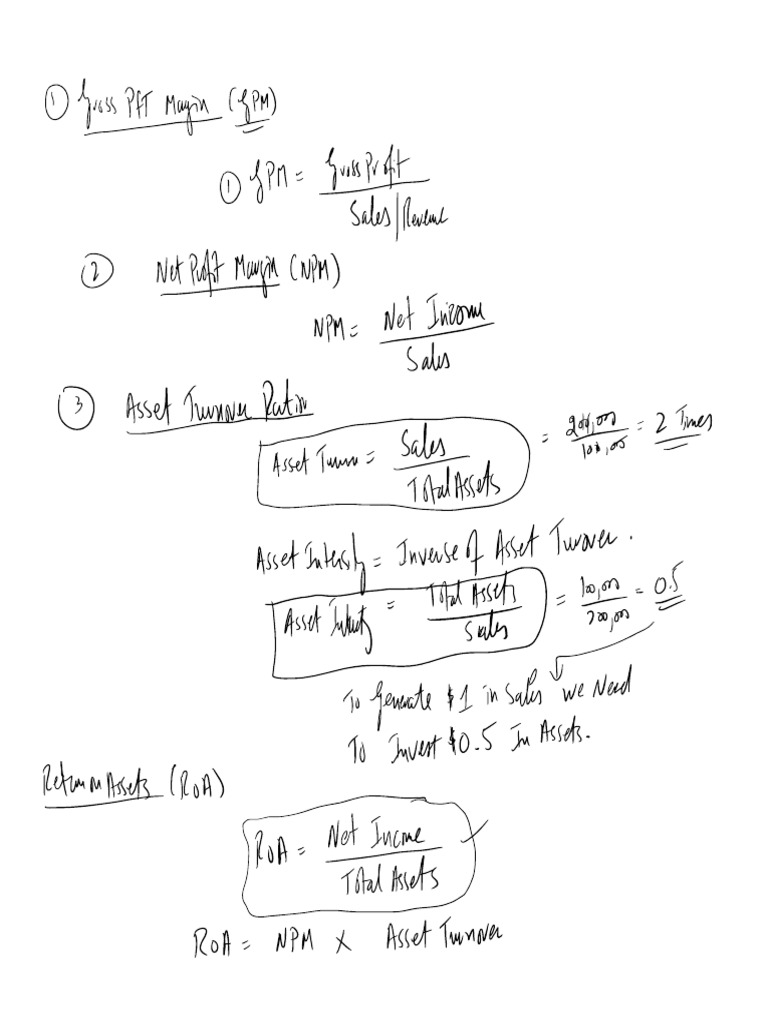 ① Gross Pft Margin (GPM)
① GPM = Gross Profit / Sales/Revenue
② Net Profit Margin (NPM)
NPM = Net Income / Sales
③ Asset Turnover Ratio
Asset Turnover = Sales / Total Assets = 200,000 / 100,000 = 2 Times
Asset Intensity = Inverse of Asset Turover.
Asset Intensity = Total Assets / Sales = 100,000 / 200,000 = 0.5
To Generate $1 in Sales we Need
To Invest $0.5 In Assets.
Return on Assets (RoA)
RoA = Net Income / Total Assets
RoA = NPM X Asset Turnover